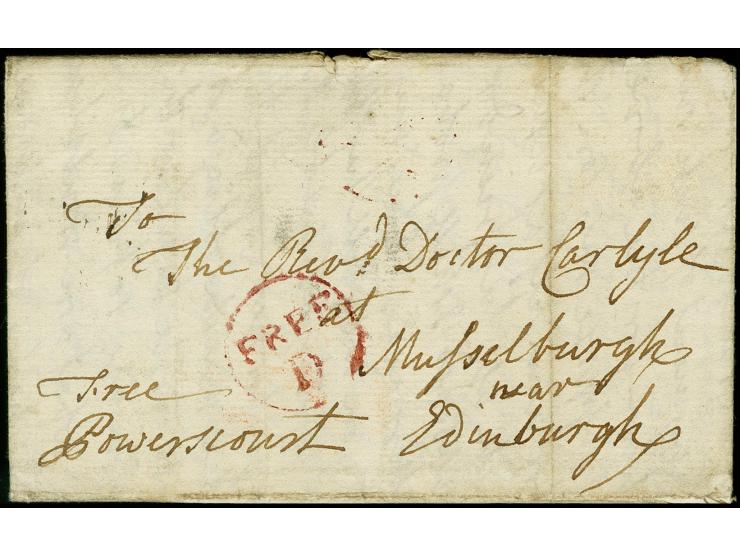 To
The Revd Doctor Carlyle
at
FREE
D
Musselburgh
near
Free
Powerscourt Edinburgh